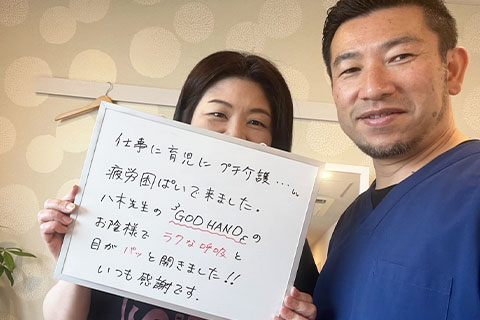 仕事に育児に プチ介護…。
疲労困ぱいで来ました。
八木先生の "GOD HAND"の
お陰様で ラクな呼吸と
目がパッと開きました!!
いつも感謝です.